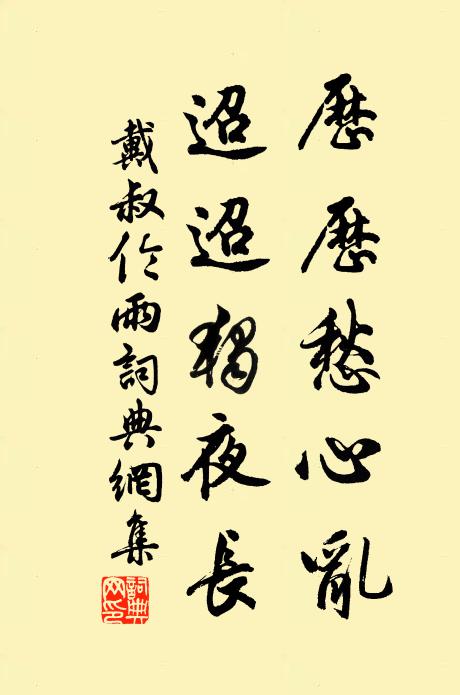 歷歷愁心亂
迢迢獨夜長
戴叔伦雨詞典網集
詞典
网印